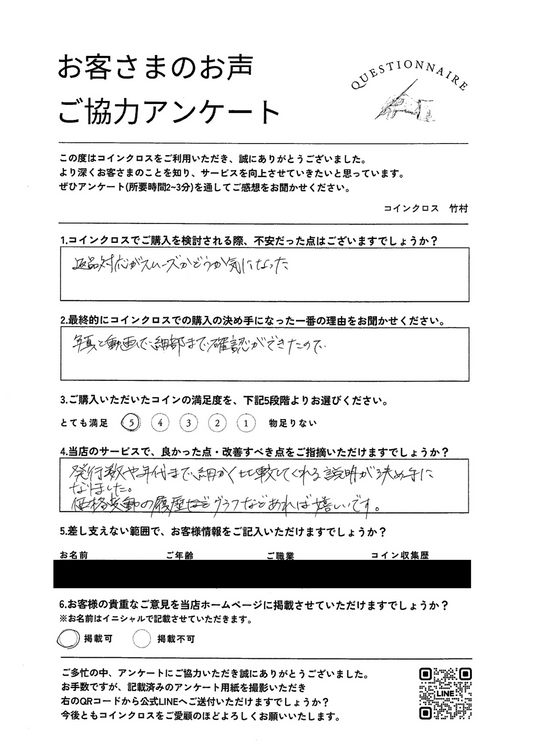 お客さまのお声
ご協力アンケート
QUESTIONNAIRE
この度はコインクロスをご利用いただき、誠にありがとうございました。
より深くお客さまのことを知り、サービスを向上させていきたいと思っています。
ぜひアンケート(所要時間2~3分)を通してご感想をお聞かせください。
コインクロス 竹村
1.コインクロスでご購入を検討される際、不安だった点はございますでしょうか？
返品対応がスムーズかどうか気になった
2.最終的にコインクロスでの購入の決め手になった一番の理由をお聞かせください。
写真と動画で、細部まで確認ができたので、
3.ご購入いただいたコインの満足度を、下記5段階よりお選びください。
とても満足 5 4 3 2 1 物足りない
4.当店のサービスで、良かった点・改善すべき点をご指摘いただけますでしょうか？
発行数や年代まで、細かく比較してくれる説明が決め手に
なりました。
価格変動の履歴などグラフなどあれば嬉しいです。
5.差し支えない範囲で、お客様情報をご記入いただけますでしょうか？
お名前 ご年齢 ご職業 コイン収集歴
6.お客様の貴重なご意見を当店ホームページに掲載させていただけますでしょうか？
※お名前はイニシャルで記載させていただきます。
掲載可 掲載不可
ご多忙の中、アンケートにご協力いただき誠にありがとうございました。
お手数ですが、記載済みのアンケート用紙を撮影いただき
右のQRコードから公式LINEへご送付いただけますでしょうか？
今後ともコインクロスをご愛顧のほどよろしくお願いいたします。
LINE